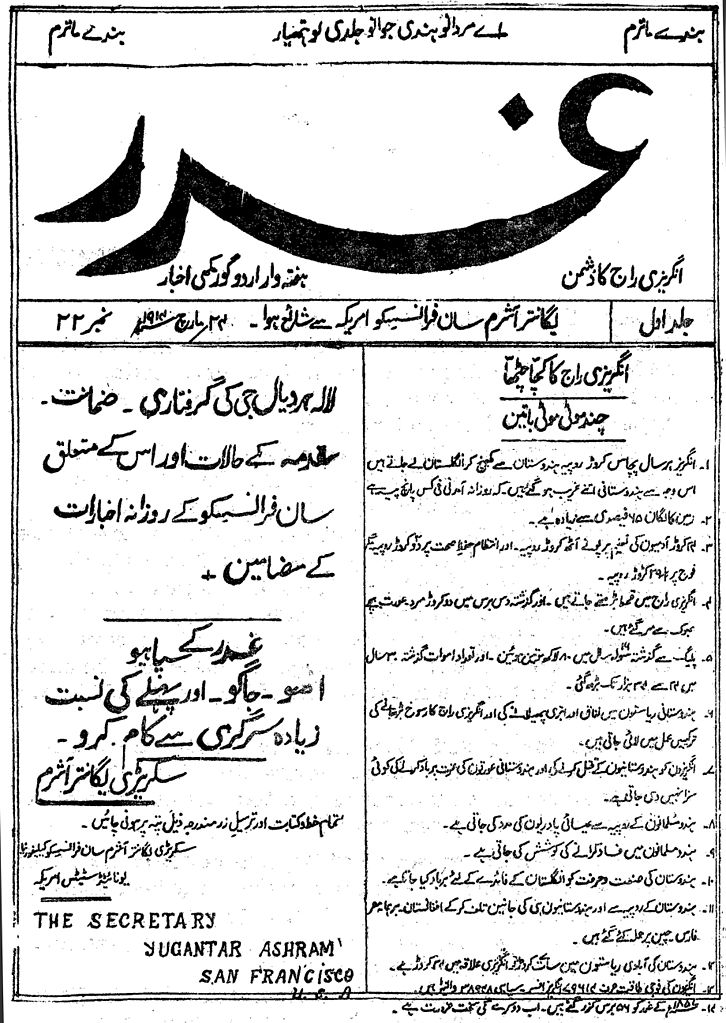 بندے ماترم
اے مردانو ہندی جوانو جلدی لو ہتھیار
بندے ماترم
غدر
انگریزی راج کا دشمن
ہفتہ وار اردو گورمکھی اخبار
جلد اول
یگانتر آشرم سان فرانسسکو امریکہ سے شائع ہوا ۔ ۲۴ مارچ ۱۹۱۴
نمبر ۲۲
انگریزی راج کا کچا چٹھا
چند موٹی موٹی باتیں
۱۔ انگریز ہر سال پچاس کروڑ روپیہ ہندوستان سے کھینچ کر انگلستان لے جاتے ہیں
اس وجہ سے ہندوستانی اتنے غریب ہو گئے ہیں۔ کہ روزانہ آمدنی فی کس پانچ پیسہ ہے
۲۔ زمین کا لگان ۶۵ فیصدی سے زیادہ ہے۔
۳۔ ۲۴ کروڑ آدمیوں کی تعلیم پر پونے آٹھ کروڑ روپیہ۔ اور انتظام حفظ صحت پر دو کروڑ روپیہ مگر
فوج پر ۲۹½ کروڑ روپیہ۔
۴۔ انگریزی راج میں قحط بڑھتے جاتے ہیں۔ اور گذشتہ دس برس میں دو کروڑ مرد عورت بچے
بھوک سے مر گئے ہیں۔
۵۔ پلیگ سے گذشتہ سولہ سال میں ۸۰ لاکھ موتیں ہوئیں۔ اور تعداد اموات گذشتہ ۳۰ سال
میں ۲۴ سے ۳۴ ہزار تک بڑھ گئی۔
۶۔ ہندوستانی ریاستوں میں نفاق اور ابتری پھیلانے کی اور انگریزی راج کا رسوخ بڑھانے کی
ترکیبیں عمل میں لائی جاتی ہیں۔
۷۔ انگریزوں کو ہندوستانیوں کے قتل کرنے کی اور ہندوستانی عورتوں کی عزت برباد کرنے کی کوئی
سزا نہیں دی جاتی ہے۔
۸۔ ہندو مسلمانوں کے روپیہ سے عیسائی پادریوں کی مدد کی جاتی ہے۔
۹۔ ہندو مسلمانوں میں فساد کرانے کی کوشش کی جاتی ہے۔
۱۰۔ ہندوستان کی صنعت و حرفت کو انگلستان کے فائدے کے لئے برباد کیا جاتا ہے۔
۱۱۔ ہندوستان کے روپیہ سے اور ہندوستانیوں ہی کی جانیں تلف کر کے افغانستان۔ برہما۔ مصر
فارس۔ چین پر حملے کئے گئے ہیں۔
۱۲۔ ہندوستان کی آبادی ریاستوں میں سات کروڑ اور انگریزی علاقہ میں ۲۴ کروڑ ہے۔
۱۳۔ انگریزوں کی فوجی طاقت صرف ۷۹۶۱۴ انگریز افسر و سپاہی ۳۸۹۴۸ والنٹیر ہیں۔
۱۴۔ ۱۸۵۷ کے غدر کو ۵۶ برس گذر گئے ہیں۔ اب دوسرے کی سخت ضرورت ہے۔
لالہ ہردیال جی کی گرفتاری۔ ضمانت۔
مقدمہ کے حالات اور اس کے متعلق
سان فرانسسکو کے روزانہ اخبارات
کے مضامین +
غدر کے سپاہیو
اٹھو۔ جاگو۔ اور پہلے کی نسبت
زیادہ سرگرمی سے کام کرو۔
سکریٹری یگانتر آشرم
تمام خط و کتابت اور ترسیل زر مندرجہ ذیل پتہ پر ہونی چاہئیں۔
سکریٹری یگانتر آشرم سان فرانسسکو کیلیفورنیا
یونائیٹڈ سٹیٹس امریکہ
THE SECRETARY
YUGANTAR ASHRAM
SAN FRANCISCO
U.S.A